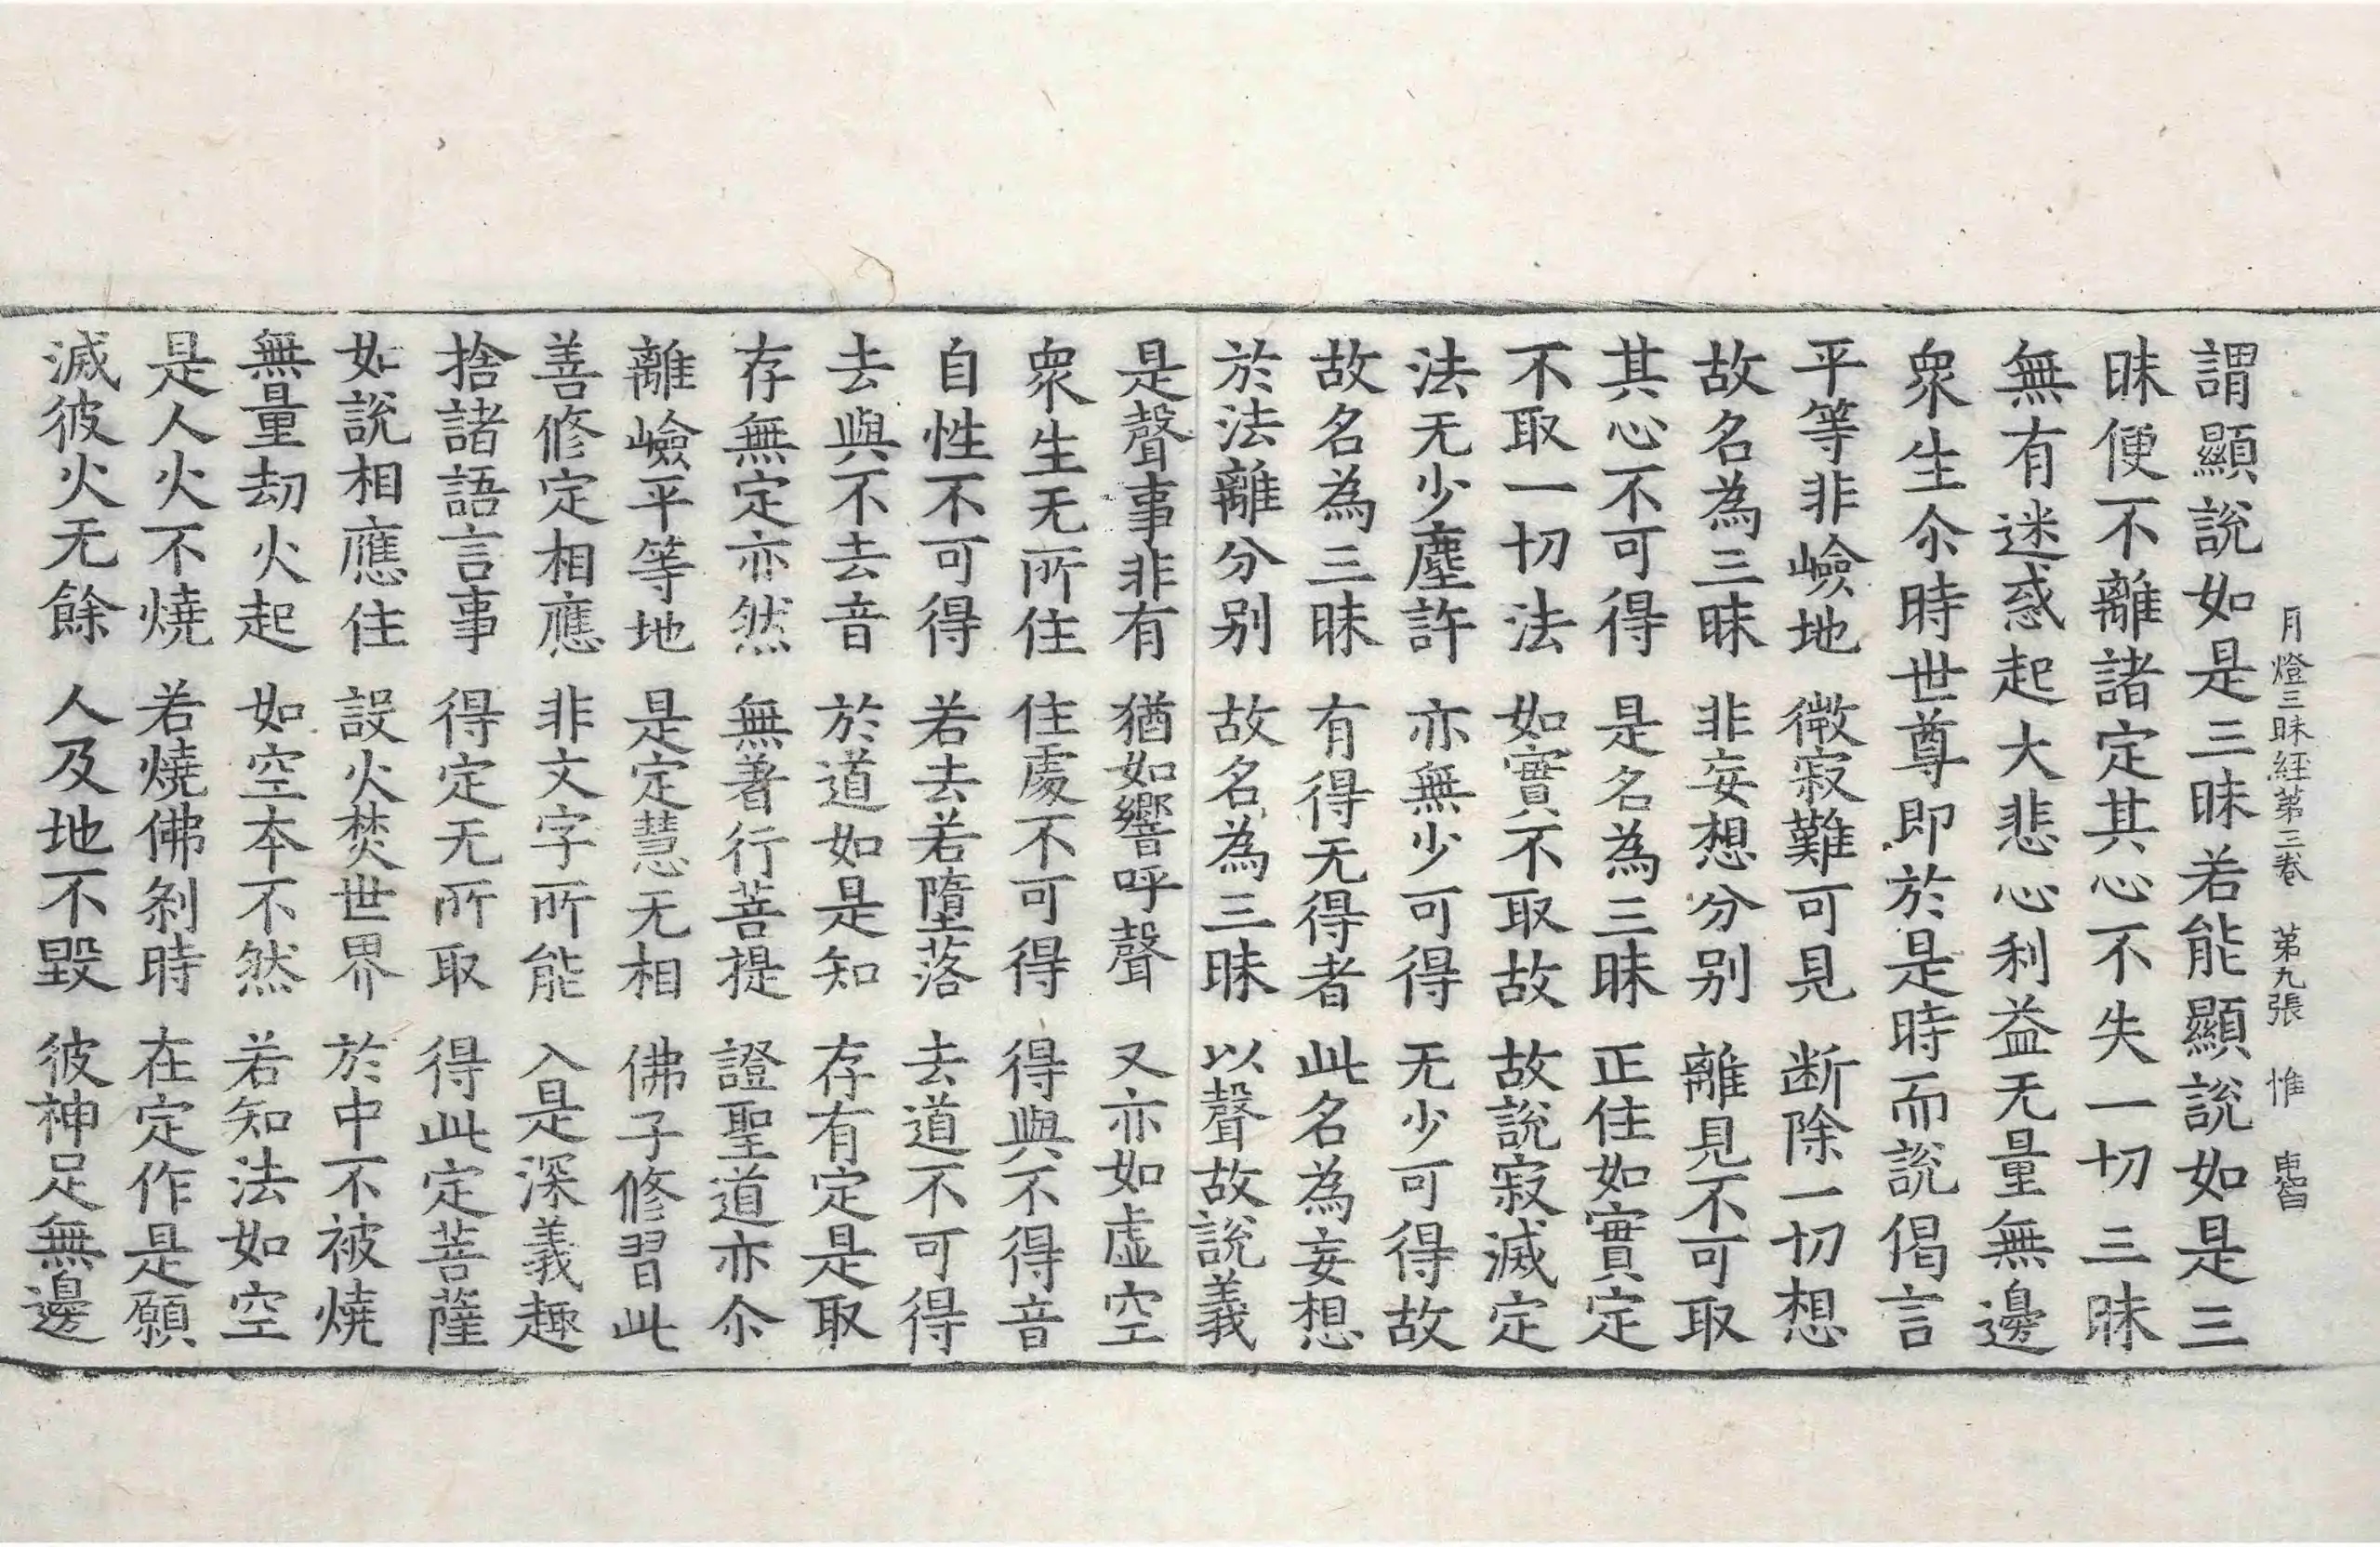 月燈三昧經第三卷 第九張 惟
謂顯說如是三昧若能顯說如是三
昧便不離諸定其心不失一切三昧
無有迷惑起大悲心利益无量無邊
衆生尒時世尊即於是時而說偈言
平等非嶮地 微寂難可見 断除一切想
故名為三昧 非妄想分别 離見不可取
其心不可得 是名為三昧 正住如實定
不取一切法 如實不取故 故說寂滅定
法无少塵許 亦無少可得 无少可得故
故名為三昧 有得无得者 此名為妄想
於法離分别 故名為三昧 以聲故說義
是聲事非有 猶如響呼聲 又亦如虛空
衆生无所住 住處不可得 得與不得音
自性不可得 若去若墮落 去道不可得
去與不去音 於道如是知 存有定是取
存無定亦然 無著行菩提 證聖道亦尒
離嶮平等地 是定慧无相 佛子修習此
善修定相應 非文字所能 入是深義趣
捨諸語言事 得定无所取 得此定菩薩
如說相應住 設火焚世界 於中不被燒
無量劫火起 如空本不然 若知法如空
是人火不燒 若燒佛剎時 在定作是願
滅彼火无餘 人及地不毀 彼神足無邊